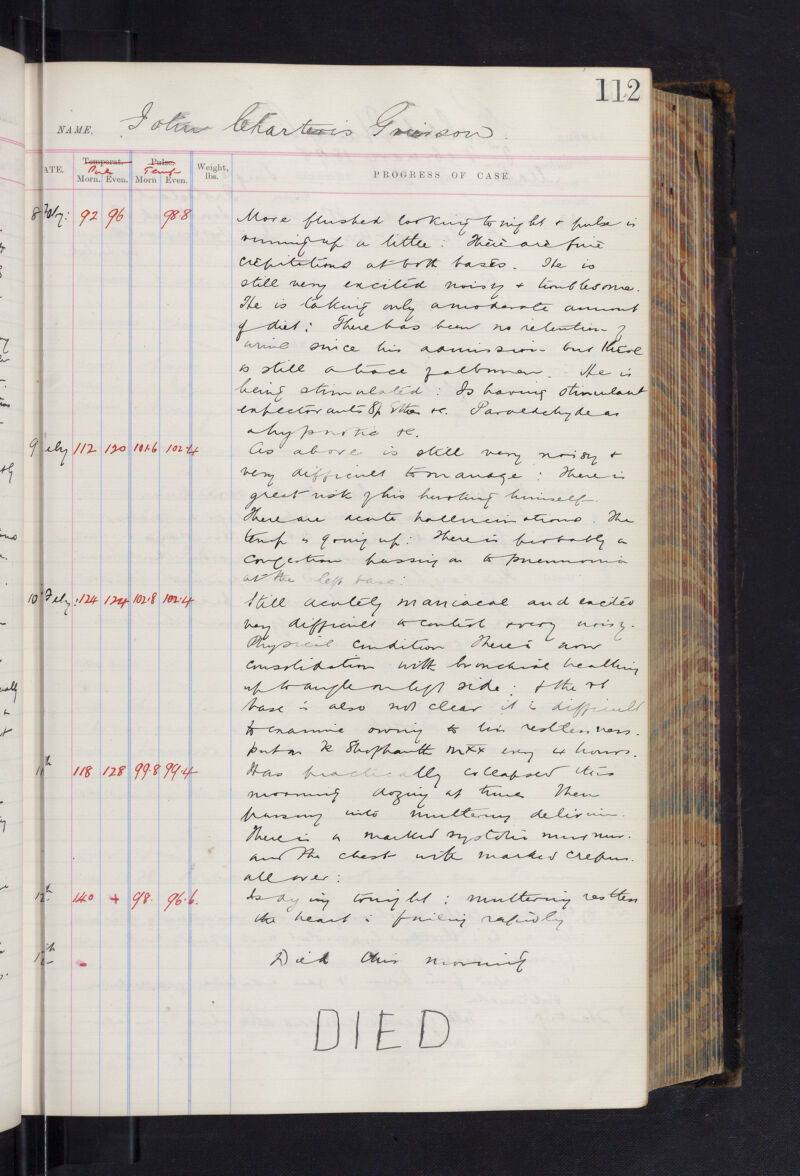 112
NAME, John Charteris Grierson.
DATE. Temperat. Pulse. Weight, PROGRESS OF CASE.
Pulse Temp lbs.
Morn. Even. Morn Even.
8 Feby: 92 96 98.8 More flushed looking tonight & pulse is
running up a little: There are fine
crepitations at both bases. He is
still very excited noisy & troublesome.
He is taking only a moderate amount
of diet: There has been no retention of
urine since his admission but there
is still a trace of albumen. He is
being stimulated: Is having stimulant
expectorants Sp Ether &c. Paraldehyde as
a hypnotic &c.
9 Feby 112 120 101.6 102.4 As above is still very noisy &
very difficult to manage: There is
great risk of his hurting himself.
There are acute hallucinations. The
temp is going up: There is probably a
congestion passing on to pneumonia
at the left base:
10 Feby: 124 124 102.8 102.4 Still acutely maniacal and excited
very difficult to control & very noisy.
Physical condition There is now
consolidation with bronchial breathing
up to angle on left side: & the rt
base is also not clear it is difficult
to examine owing to his restlessness.
Put on Tr Strophanth mxx every 4 hours.
11th 118 128 99.8 99.4 Has practically collapsed this
morning dozing at times then
passing into muttering delirium.
There is a marked systolic murmur.
and the chest with marked crepns.
all over:
12th 140 + 98. 96.6. Is dying tonight: muttering restless
the heart is failing rapidly
Died this morning
DIED